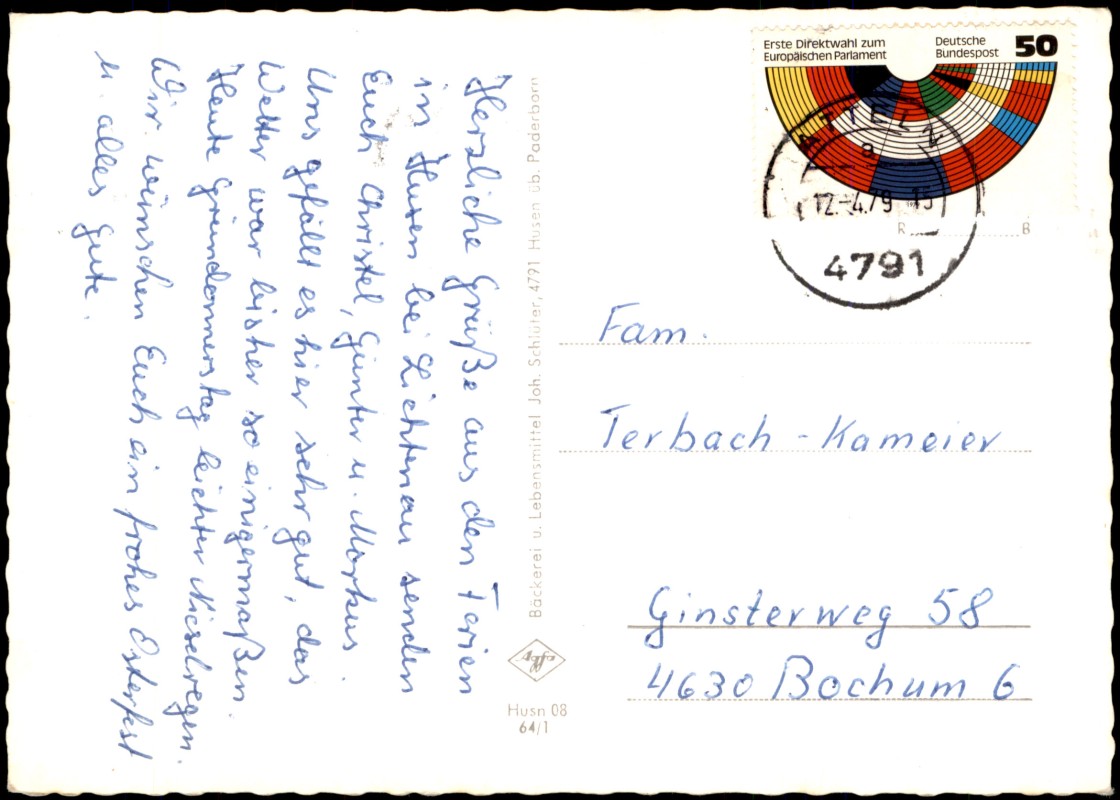 Erste Direktwahl zum
Europäischen Parlament
Deutsche
Bundespost
50
12.-4.79-15
4791
R
B
Herzliche Grüße aus den Ferien
in Husen bei Lichtenau senden
Euch Christel, Günter u. Markus.
Uns gefällt es hier sehr gut, das
Wetter war bisher so einigermaßen.
Heute Gründonnerstag leichter Nieselregen.
Wir wünschen Euch ein frohes Osterfest
u. alles Gute.
Bäckerei u. Lebensmittel Joh. Schlüter, 4791 Husen üb. Paderborn
Husn 08
64/1
Fam.
Terbach - Kameier
Ginsterweg 58
4630 Bochum 6